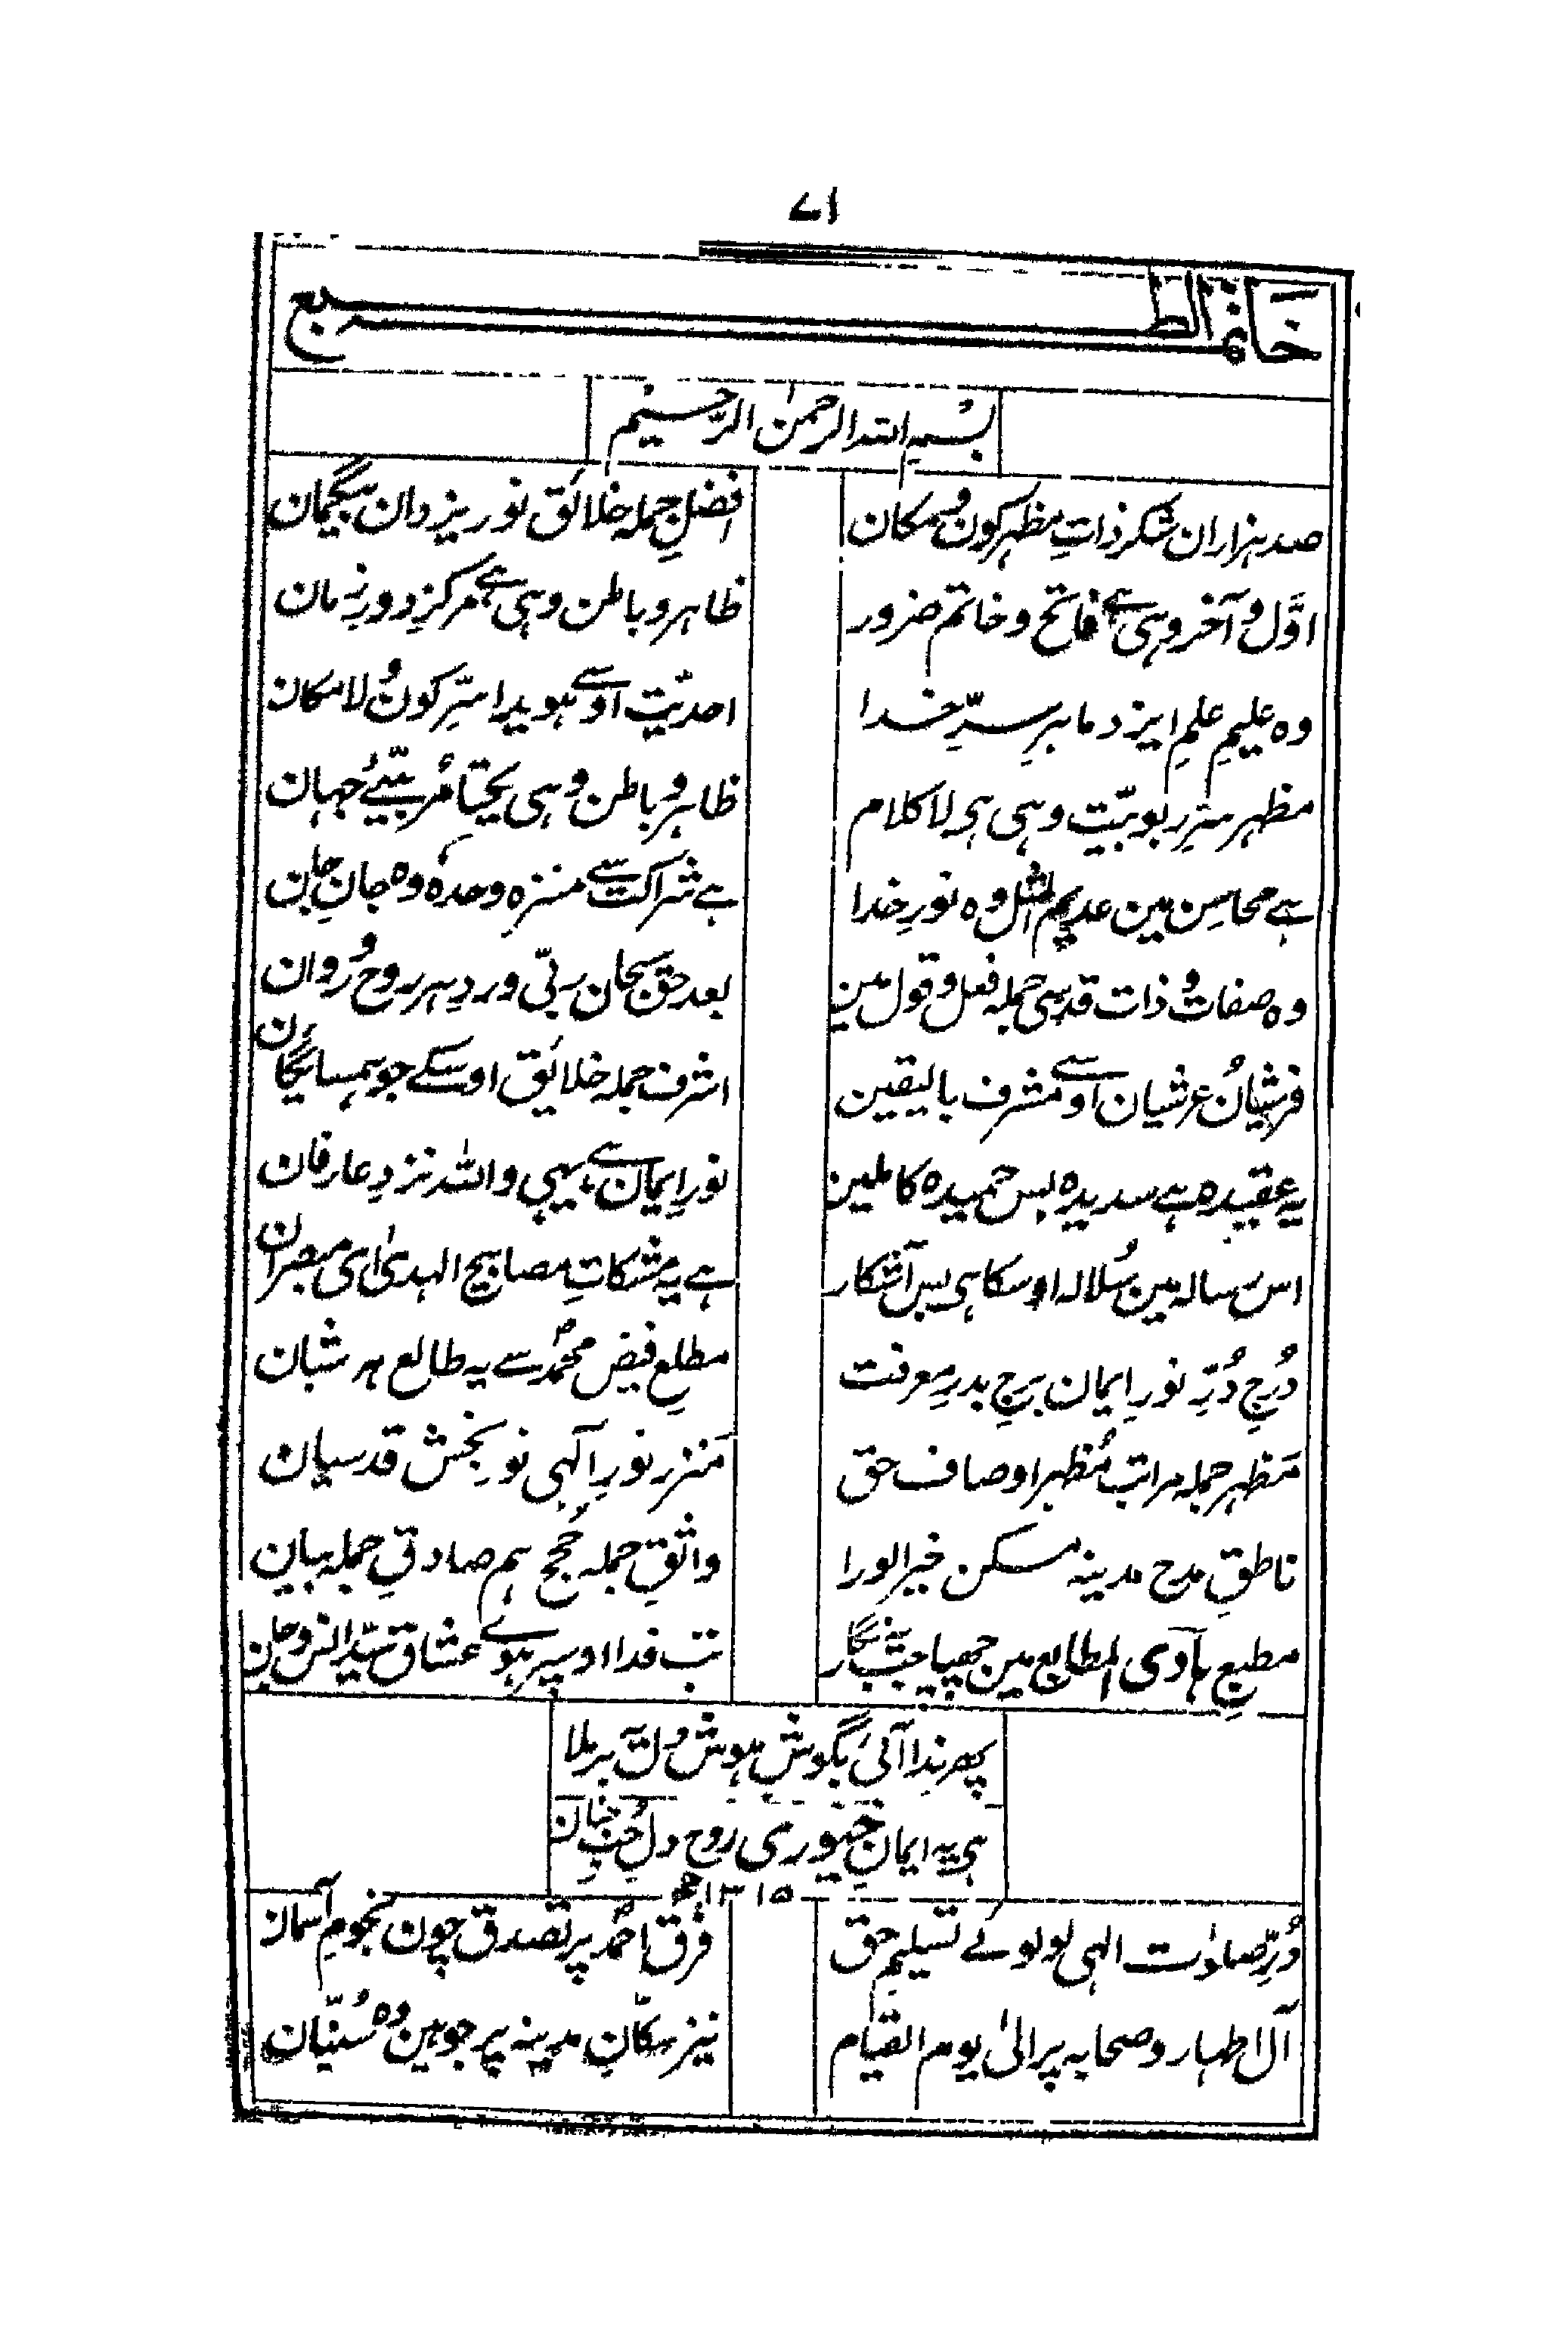 ۷۱
خاتمۃ الطبع
بسم اللہ الرحمٰن الرّحیم
صد ہزاران شکر ذاتِ مظہر کون و مکان افضلِ جملہ خلائق نور یزدان بیگمان
اوّل و آخر وہی ہے فاتح و خاتم ضرور ظاہر و باطن وہی ہے مرکزِ دورِ زمان
وہ علیمِ علمِ ایزد ماہرِ سرِّ خدا احدیّت اوسے ہویدا سِرِّ کون و لامکان
مظہر سرِّ ربوبیّت وہی ہی لاکلام ظاہر و باطن وہی مربّیِٔ جہان
ہے محاسن مین عدیم المثل وہ نورِ خدا ہے شراکت سے منزہ وحدہٗ وہ جانِ جان
وہ صفات و ذات قدسی جملہ فعل و قول مین بعد حق سبحان ربّی ورد ہر روح و روان
فرشیان و عرشیان اوسے مشرف بالیقین اشرف جملہ خلائق اوسکے جو ہمسائگان
یہ عقیدہ ہے سدیدہ بس حمیدہ کاملین نورِ ایمان ہے یہی واللہ نزدِ عارفان
اس رسالہ مین سُلالہ اوسکا ہی بس آشکار ہے یہ مشکاتِ مصابیح الہدیٰ ای مبصران
دُرجِ دُرِّ نورِ ایمان برجِ بدرِ معرفت مطلعِ فیض محمدؐ سے یہ طالع ہر شبان
مَظہر جملہ مراتب مُظہر اوصاف حق نورِ آلہی نور بخش قدسیان
ناطقِ مدح مدینہ مسکن خیر الورا واثقِ جملہ حُجج ہم صادقِ جملہ بیان
مطبع ہادی المطابع مین چھپا جب یہ نگار تب فدا اوسپر ہوے عشاق سیّد انس و جان
پھر ندا آئی بگوشِ ہوش و لہ برملا
ہی یہ ایمانِ روح دل حُبِّ
۱۳۱۵ھ
دُرِّ صلوٰت الہی لولوئے تسلیمِ حق فرق احمدؐ پر تصدق چون نجومِ آسمان
آل اطہار و صحابہ پر الیٰ یوم القیام نیز سکّانِ مدینہ پر جو ہین وہ سُنّیان